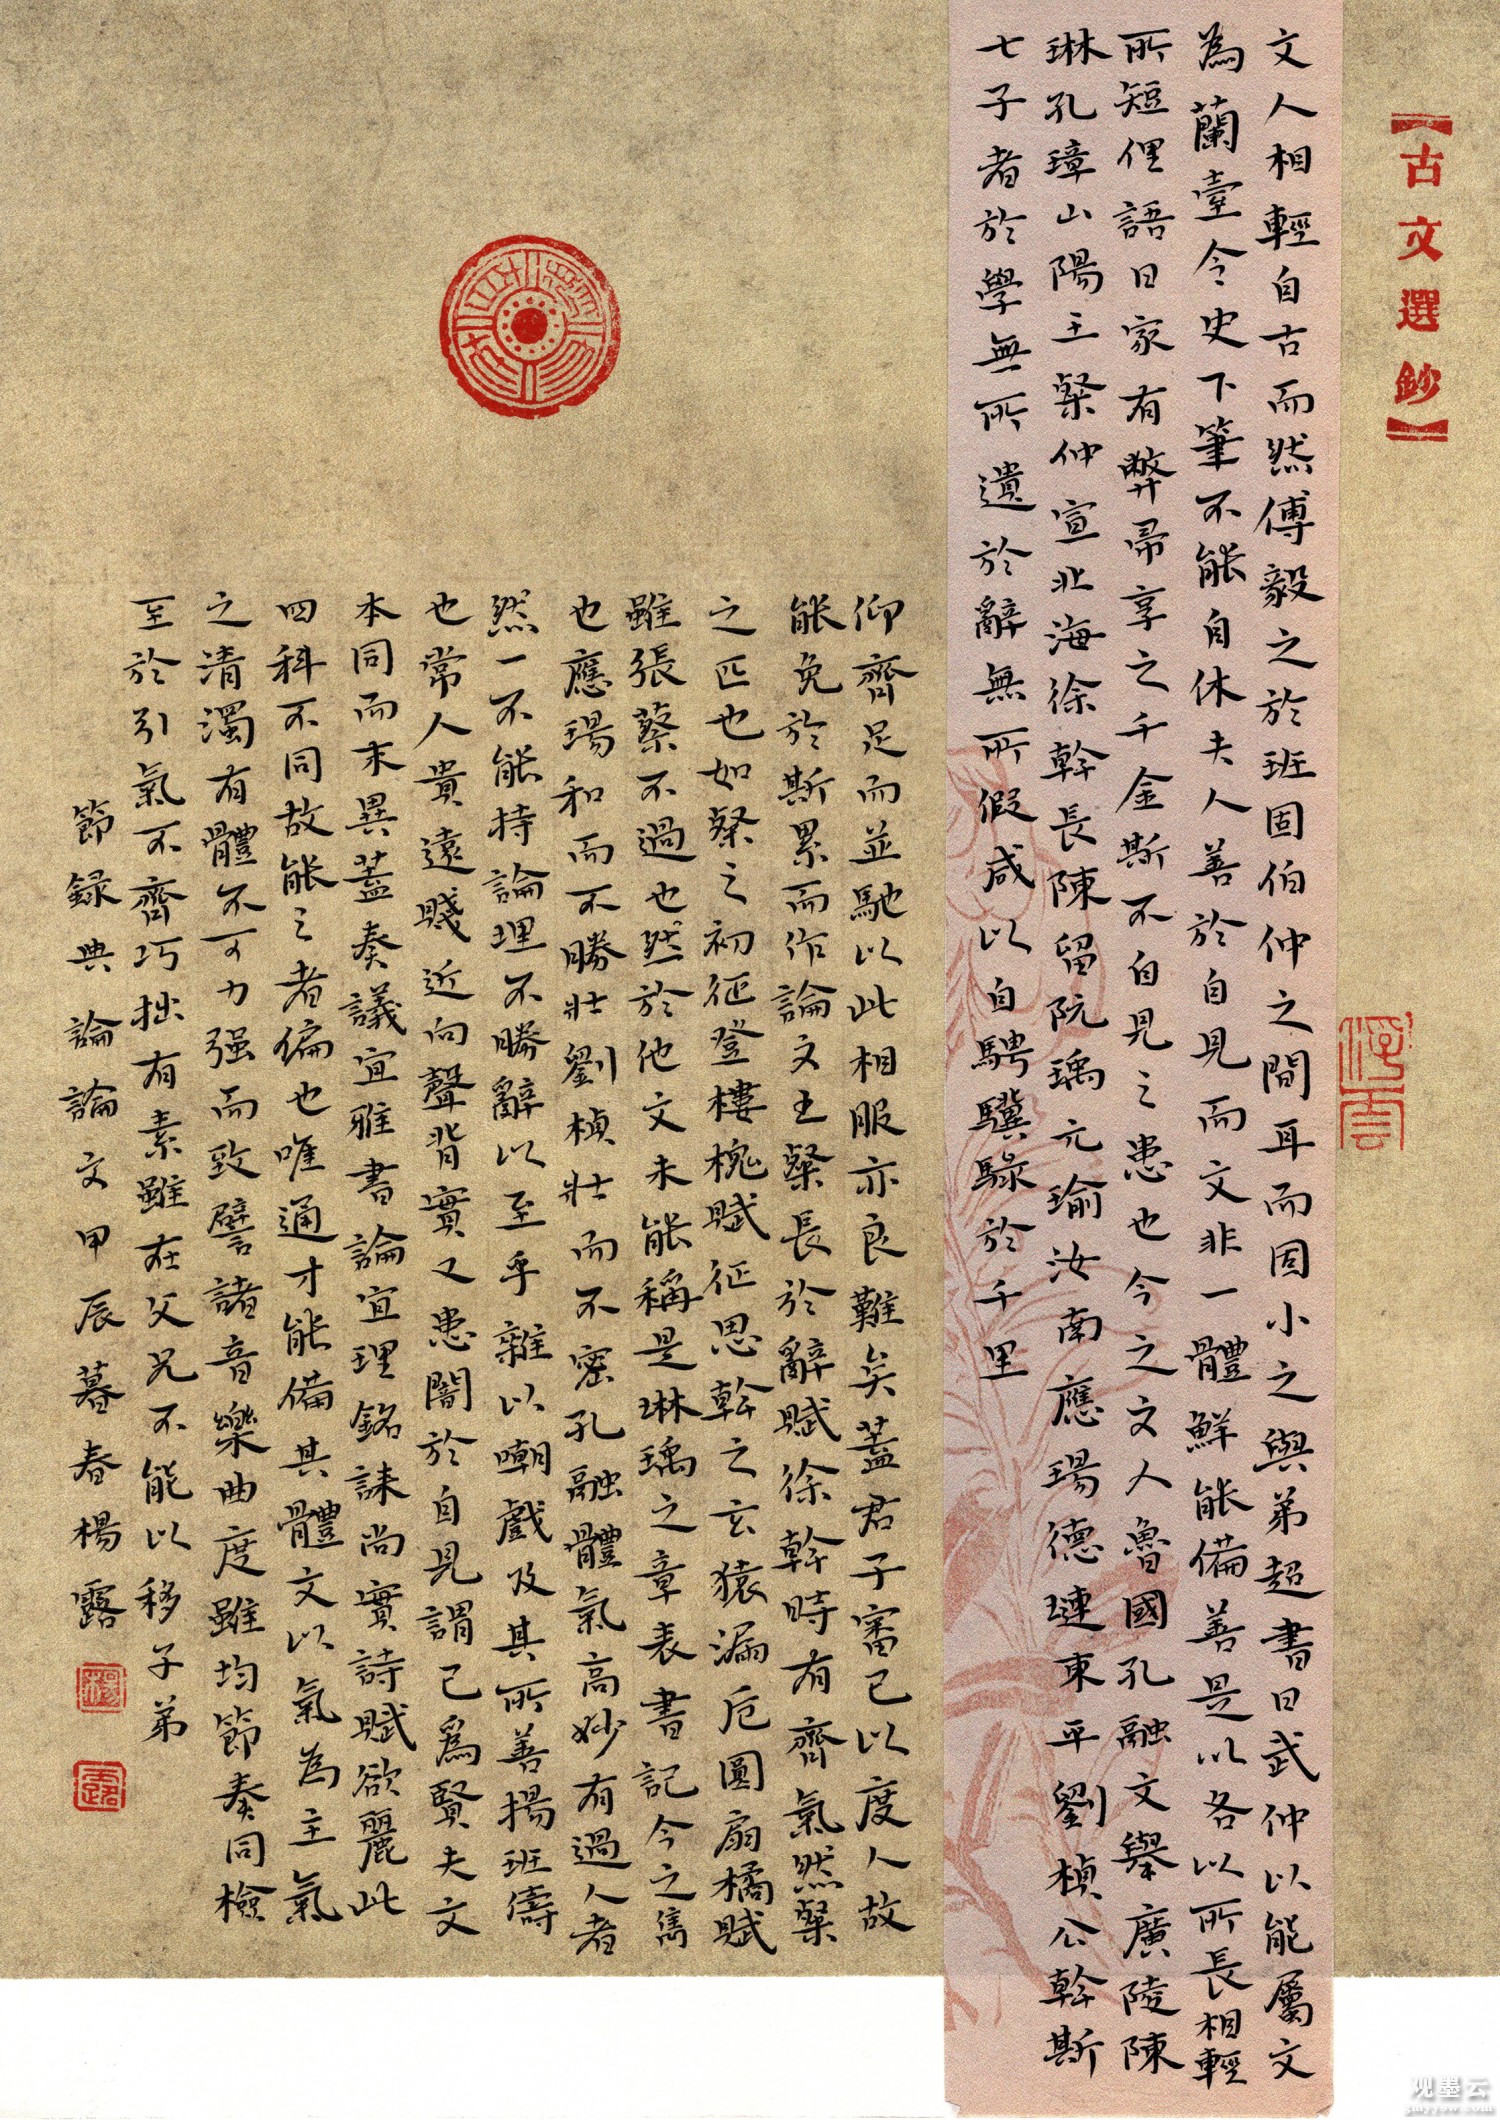 【古文選鈔】
文人相輕自古而然傅毅之於班固伯仲之間耳而固小之與弟超書曰武仲以能屬文
為蘭臺令史下筆不能自休夫人善於自見而文非一體鮮能備善是以各以所長相輕
所短俚語曰家有弊帚享之千金斯不自見之患也今之文人魯國孔融文舉廣陵陳
琳孔璋山陽王粲仲宣北海徐幹長陳留阮瑀元瑜汝南應瑒德璉東平劉楨公幹斯
七子者於學無所遺於辭無所假咸以自騁驥騄於千里
仰齊足而並馳以此相服亦良難矣蓋君子審己以度人故
能免於斯累而作論文王粲長於辭賦徐幹時有齊氣然粲
之匹也如粲之初征登樓槐賦征思幹之玄猿漏卮圓扇橘賦
雖張蔡不過也然於他文未能稱是琳瑀之章表書記今之雋
也應瑒和而不勝壯劉楨壯而不密孔融體氣高妙有過人者
然一不能持論理不勝辭以至乎雜以嘲戲及其所善揚班儔
也常人貴遠賤近向聲背實又患闇於自見謂己為賢夫文
本同而末異蓋奏議宜雅書論宜理銘誄尚實詩賦欲麗此
四科不同故能之者偏也唯通才能備其體文以氣為主氣
之清濁有體不可力强而致譬諸音樂曲度雖均節奏同檢
至於引氣不齊巧拙有素雖在父兄不能以移子弟
節録典論論文甲辰暮春楊露
浮雲
楊
露
观墨云
gmyyow.com